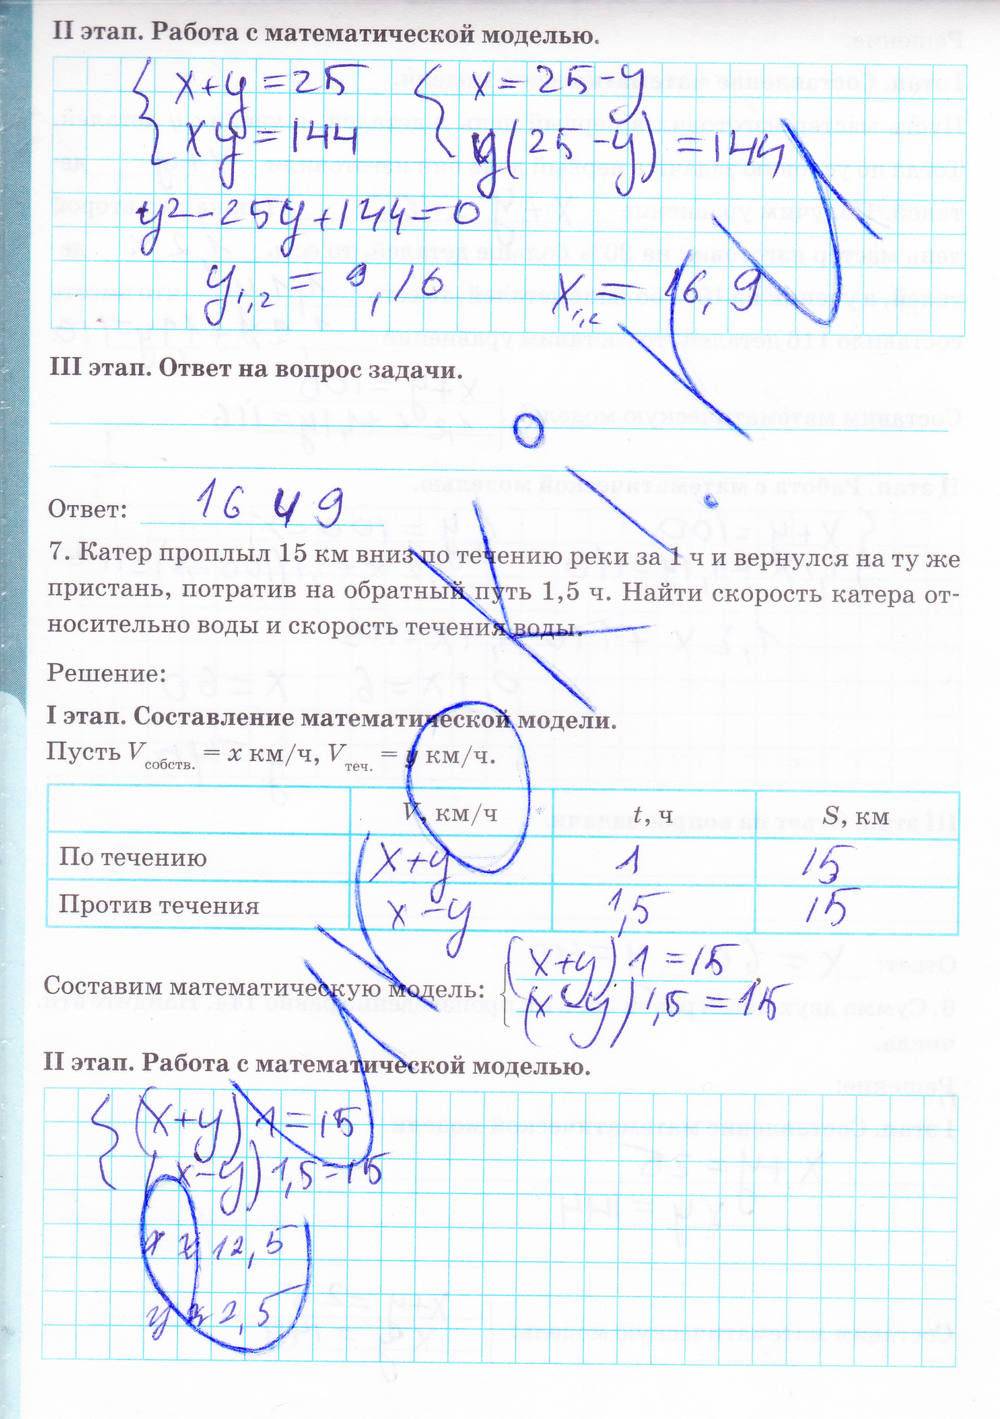 II этап. Работа с математической моделью.
x+y=25 x=25-y
xy=144 y(25-y)=144
y²-25y+144=0
y1,2=9,16 x1,2=16,9
III этап. Ответ на вопрос задачи.
Ответ: 16 и 9
7. Катер проплыл 15 км вниз по течению реки за 1 ч и вернулся на ту же
пристань, потратив на обратный путь 1,5 ч. Найти скорость катера от-
носительно воды и скорость течения воды.
Решение:
I этап. Составление математической модели.
Пусть Vсобств. = x км/ч, Vтеч. = y км/ч.
V, км/ч t, ч S, км
По течению x+y 1 15
Против течения x-y 1,5 15
Составим математическую модель: (x+y)1=15
(x-y)1,5=15
II этап. Работа с математической моделью.
(x+y)1=15
(x-y)1,5=15
x=12,5
y=2,5